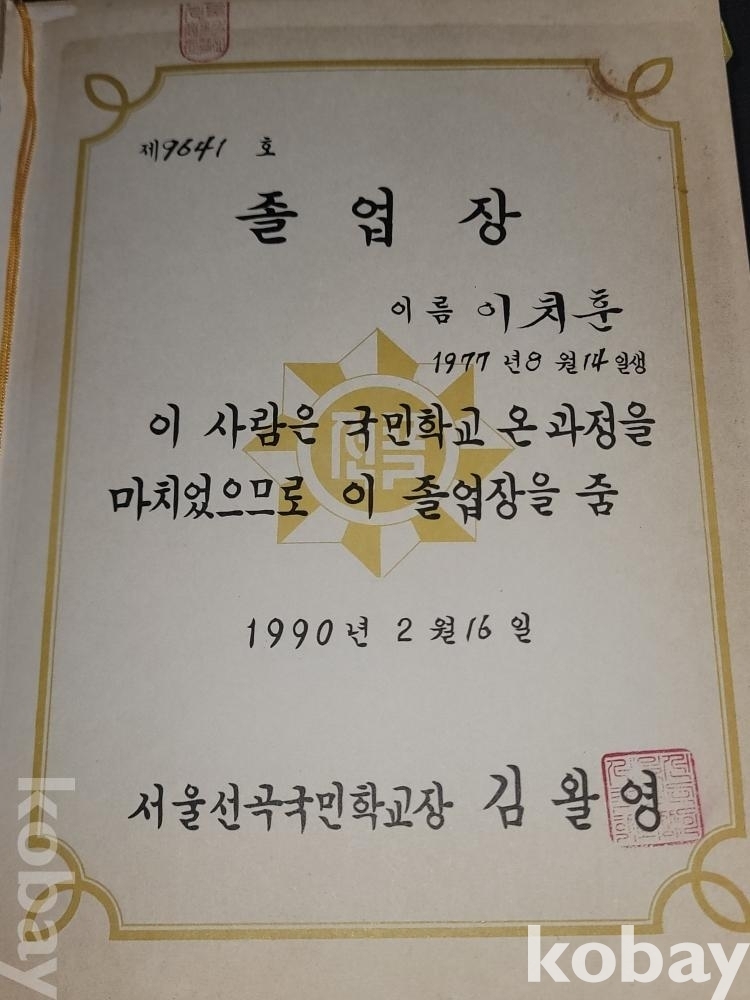 제9641 호
졸 업 장
이름 이치훈
1977 년 8 월 14 일생
이 사람은 국민학교 온 과정을
마치었으므로 이 졸업장을 줌
1990 년 2 월 16 일
서울선곡국민학교장 김왈영
kobay
kobay